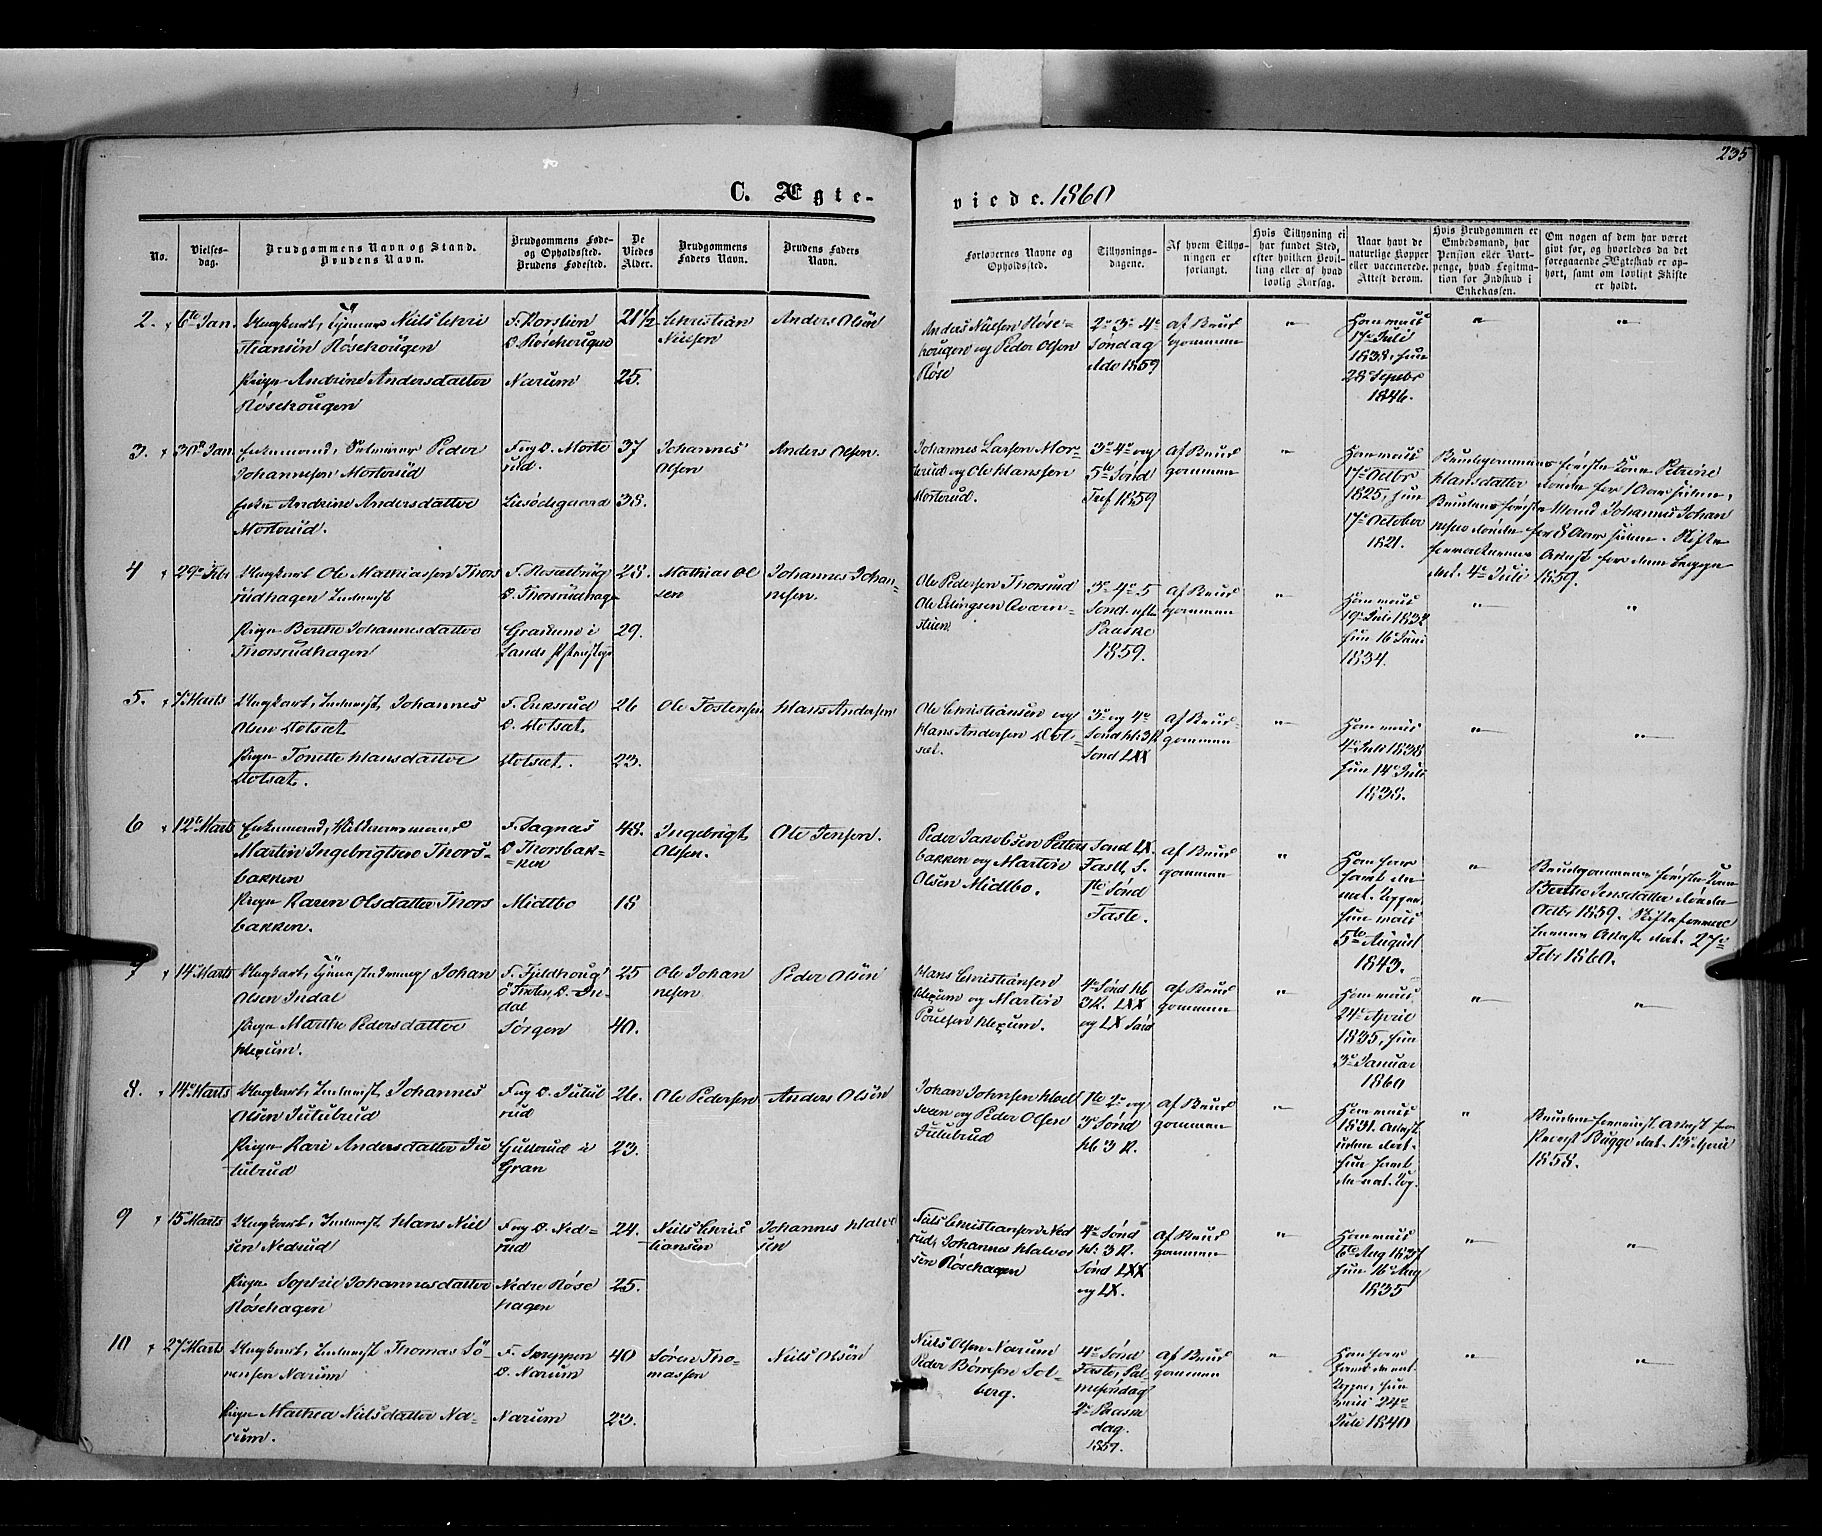 235
C. Ægte-
viede. 1860
No.
Vielses-
dag.
Brudgommens Navn og Stand.
Brudens Navn.
Brudgommens Føde-
og Opholdssted.
Brudens Fødested.
De
Viedes
Alder.
Brudgommens
Faders Navn.
Brudens Faders
Navn.
Forlovernes Navne og
Opholdssted.
Tillysnings-
dagene.
Af hvem Tillys-
ningen er
forlangt.
Hvis Tillysning ei
har fundet Sted,
efter hvilken Bevil-
ling eller af hvad
lovlig Aarsag.
Naar havt de
naturlige Kopper
eller vaccinerede.
Attest derom.
Hvis Brudgommen er
Embedsmand, har
Pension eller Vart-
penge, hvad Legitima-
tion for Indskud i
Enkekassen.
Om nogen af dem har været
givt før, og hvorledes da det
foregaaende Ægteskab er op-
hørt, samt om lovligt Skifte
er holdt.
2. 6te Jan. Ungkarl, Niels Chri
stiansen Røsehougen
Pigen Andrine Andersdatter
Røsehougen
F.
O. Røsehougen
Narum
21½
25.
Christian
Nielsen
Anders Olsen
Nielsen Røse-
hougen og Peder Olsen
Røse
2 3 4
Søndag
Adv 1859
af Brud
gommen
"
17 Juli
1838, hun
28 Septbr
1846.
"
"
3. 30 Jan. Enkemand, Selveier Peder
Johannesen Morterud
Enke Andrine Andersdatter
Morterud.
F og O. Morte
rud.
37
38.
Johannes
Olsen
Anders Olsen.
Johannes Larsen Mor-
terud og Ole Hanssen
Morterud.
3 4 og
5te Sønd
Tref 1859
af Brud
gommen
"
17 Octbr
1825, hun
17 October
1821.
Brudgommens første Kone Petrine
Hansdatter døde for 1 Aar siden.
Brudens første Mand Johannes Johan
nesen døde for 8 Aar siden. Skifte
dat. 4 Juli 1859.
4 29 Febr Ungkarl Ole Mathiassen Thors
rudhagen Inderst
Pigen Berthe Johannesdatter
Thorsrudhagen
F.
O. Thorsrudhage
i
Lands
28.
29.
Mathias Ol
sen
Johannes Johan-
nesen.
Ole Pedersen Thorsrud
Ole Erlingsen
3 4 5
Sønd. eft
Paaske
1859.
af Brud
gommen
"
19 Juli 1832
hun 16 Juni
1834.
"
"
5. 7 Marts Ungkarl, Inderst, Johannes
Olsen Hotsæt
Pigen Tonette Hansdatter
Hotsæt.
F. Eriksrud
O. Hotsæt.
Hotsæt.
26
23.
Ole Tostensen
Hans Andersen
Ole Christiansen og
Hans Andersen Hot-
sæt.
3 og 4
Sønd H: 3 K
Sønd LXX
af Brud-
gommen
"
4 Juli 1838
hun 14 Juli
1838.
"
"
6 12 Marts Enkemand,
Martin Ingebrigtsen Thors-
bakken
Pigen Karen Olsdatter Thors
bakken.
F. Sagnæs
O Thorsbak-
ken
Midtbo
48.
18
Ingebrigt
Olsen.
Ole Jensen.
Peder Jacobsen Petters
bakken og Martin
Olsen Midtbo.
Sønd LX.
Fastl. S.
1te Sønd
Faste.
af Brud
gommen
"
nat. Kopper,
hun
5te August
1843.
"
Brudgommens første Kone
Berthe Jensdatter døde
Octbr 1859.
Attest dat. 27
Febr 1860.
7 14 Marts Ungkarl, Johan
Olsen Indal
Pigen Marthe Pedersdatter
Hexum.
F. Fjeldhoug
O. In-
dal
Sørgen
25
40.
Ole Johan
nesen
Peder Olsen
Hans Christiansen
Hexum og Martin
Poulsen Hexum.
4 Sønd H6
3 K. LXX
og LX Sønd
af Brud
gommen
"
24 April
1835, hun
3 Januar
1860
"
"
8. 14 Marts Ungkarl, Inderst Johannes
Olsen Jutulrud
Pigen Kari Andersdatter Ju
tulrud
F og O. Jutul
rud
Gullerud i
Gran
26.
23.
Ole Pedersen
Anders Olsen
Johan Johnsen
og Peder Olsen
Jutulrud
1te 2 og
3 Sønd
H6 3 K.
af Brud
gommen
"
1831. Attest
uden dat.
hun havt
de nat. Kop.
"
Attest fra
Provst Bugge dat. 13 April
1858.
9 15 Marts Ungkarl, Inderst Hans Niel
sen Nedrud
Pigen Sophie Johannesdatter
Røsehagen
F og O. Ned-
rud
Nedre Røse
hagen
24.
25.
Niels Chris
tiansen
Johannes Halvor
sen
Niels Christiansen Ned
rud, Johannes Halvor
sen Røsehagen
4 Sønd
H: 3 K.
Sønd LXX
og LX.
af Brud
gommen
"
6te Aug 1837
hun 16 Aug
1835
"
"
10 27 Marts Ungkarl, Inderst Thomas Sø-
rensen Narum
Pigen Mathea Nielsdatter Na-
rum.
F. Sneppen
O. Narum
Narum
40
23.
Søren Tho-
massen
Niels Olsen
Niels Olsen Narum
Peder Sol-
berg.
4 Sønd
Faste, Pal-
mesøndag
2 Paaske
dag.
1859.
af Brud
gommen
"
Kopper, hun
24
Juli 1840
"
"